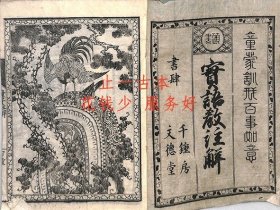 童蒙訓戒百事如意
實語教註解
書肆
千鐘房
文德堂
上一古本
少 服务好